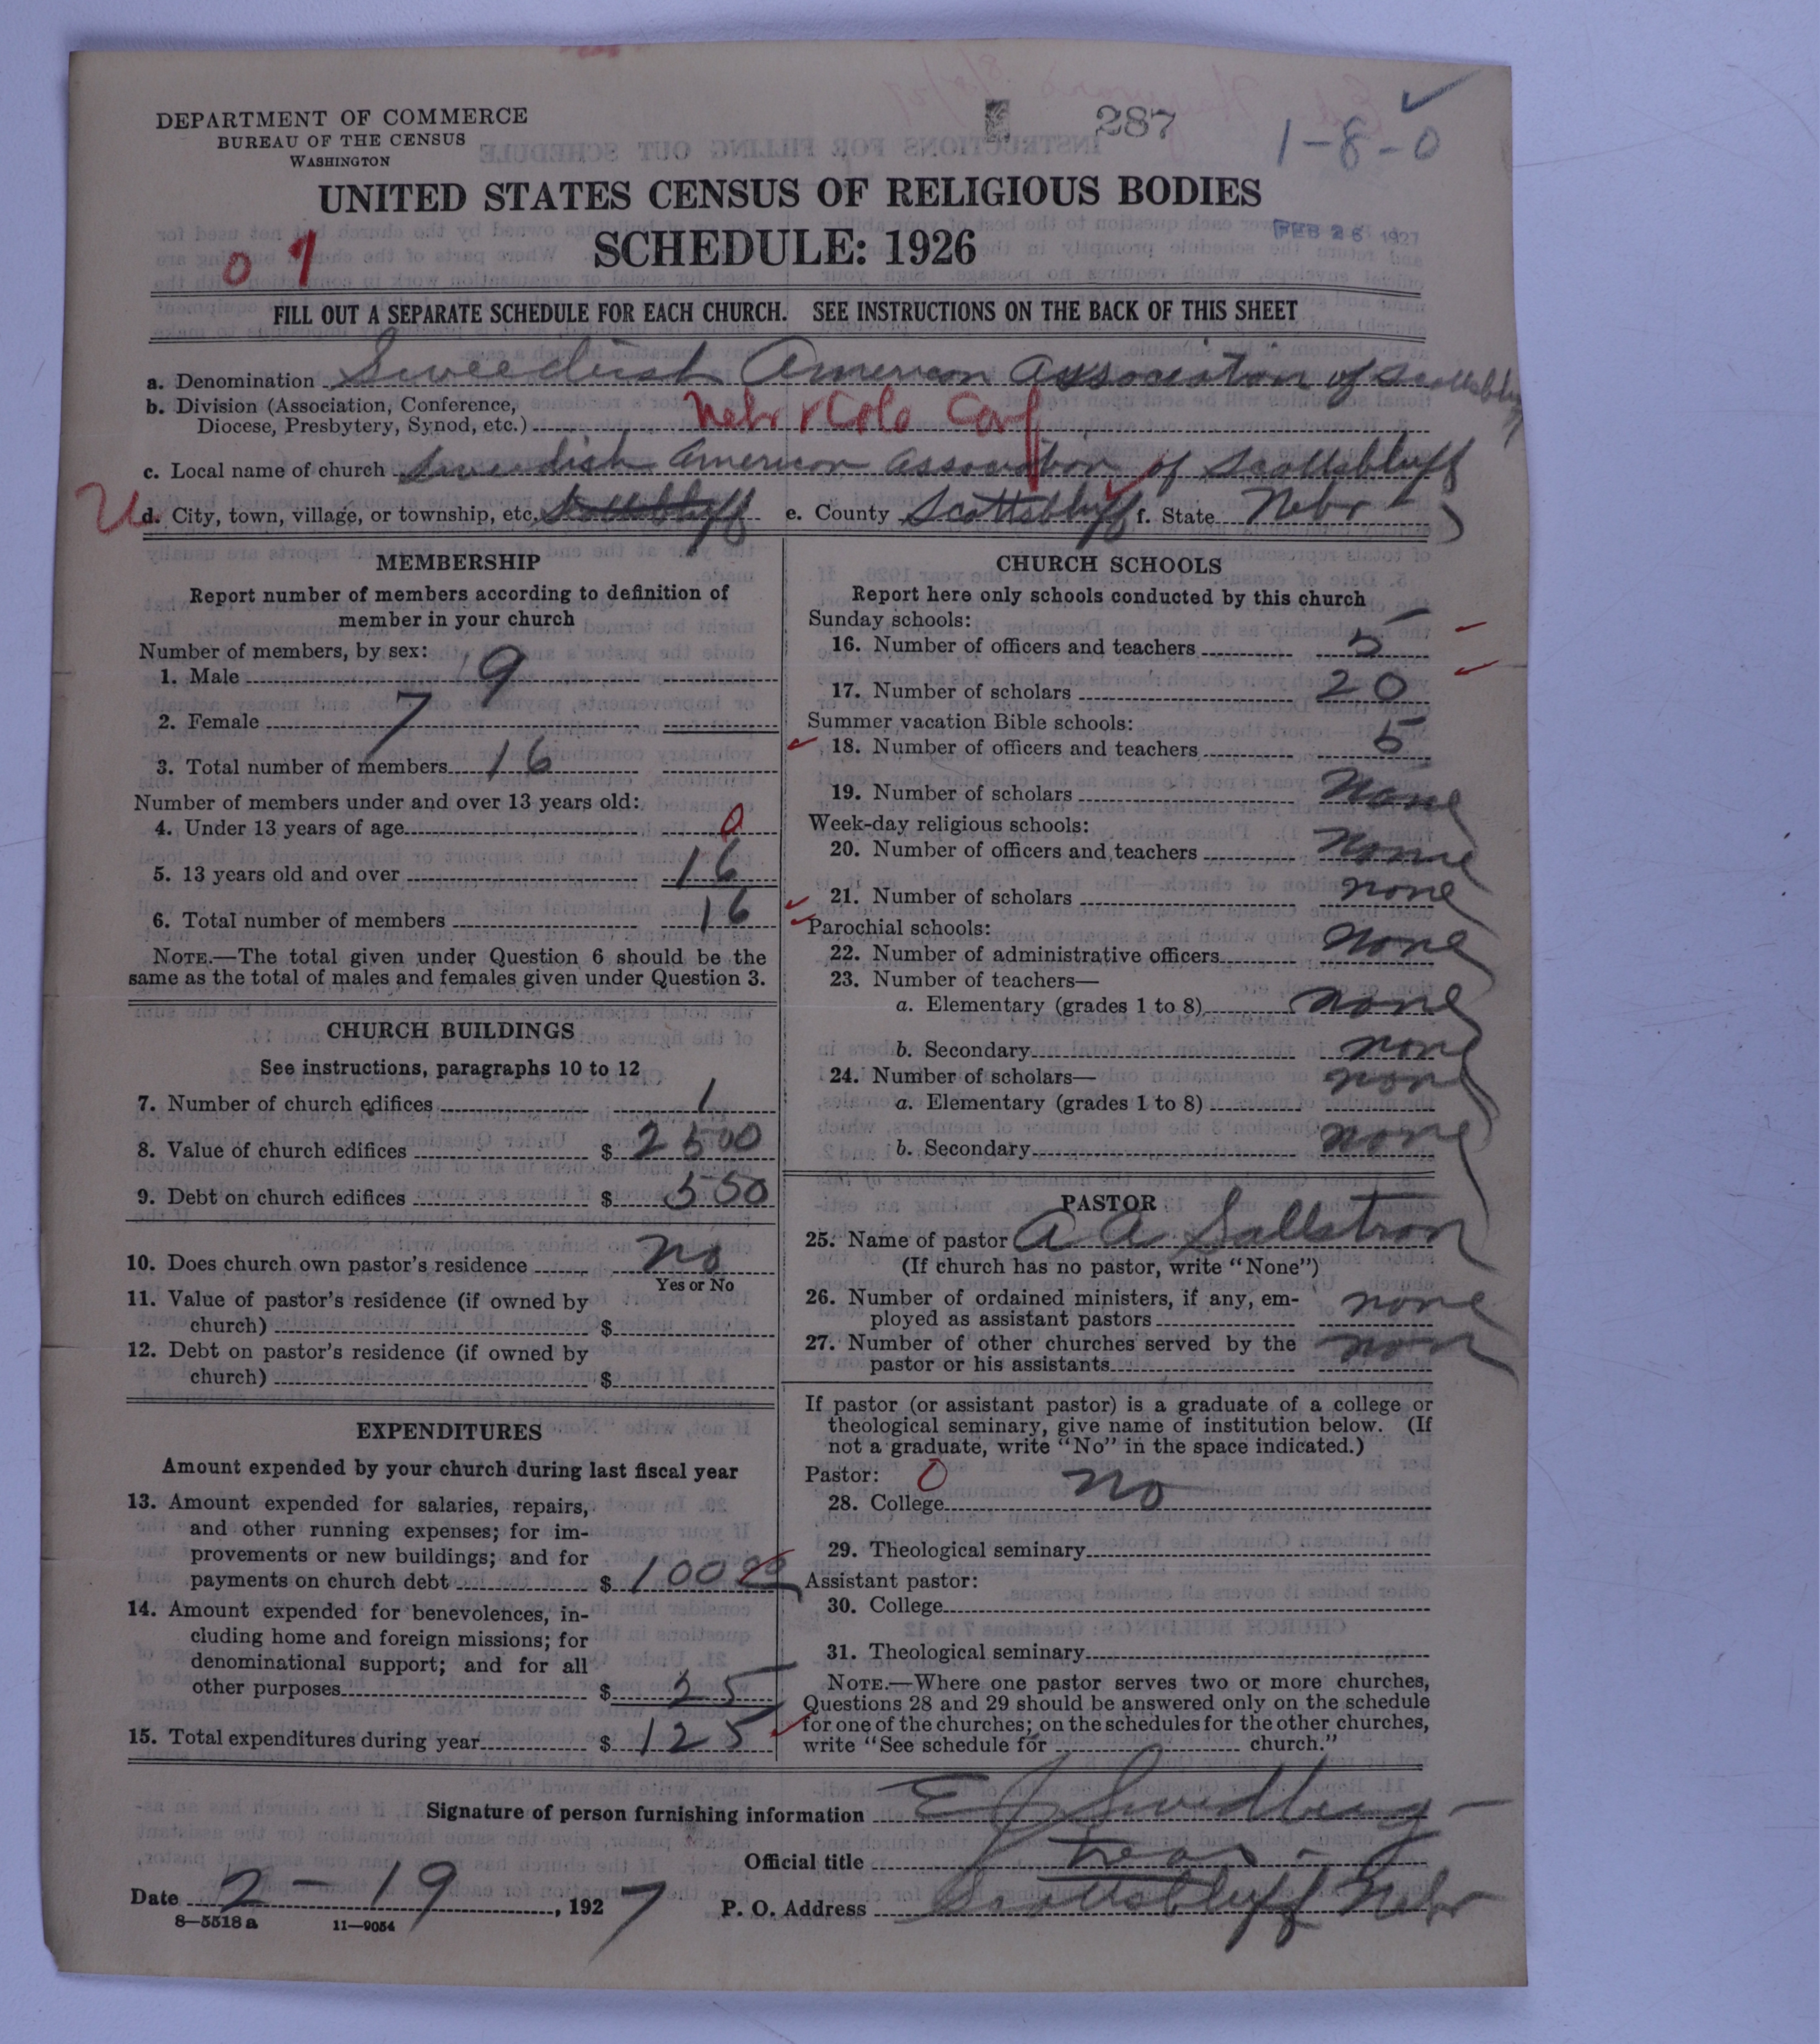 DEPARTMENT OF COMMERCE
BUREAU OF THE CENSUS
WASHINGTON
287
1-8-0
UNITED STATES CENSUS OF RELIGIOUS BODIES
SCHEDULE: 1926
FEB 26 1927
FILL OUT A SEPARATE SCHEDULE FOR EACH CHURCH. SEE INSTRUCTIONS ON THE BACK OF THIS SHEET
a. Denomination Sweedish American Association of Scottsbluff
b. Division (Association, Conference,
Diocese, Presbytery, Synod, etc.) Nebr & Colo Conf
c. Local name of church Swedish American Association of Scottsbluff
d. City, town, village, or township, etc. Scottsbluff e. County Scottsbluff f. State Nebr
MEMBERSHIP
Report number of members according to definition of
member in your church
Number of members, by sex:
1. Male 9
2. Female 7
3. Total number of members 16
Number of members under and over 13 years old:
4. Under 13 years of age 0
5. 13 years old and over 16
6. Total number of members 16
NOTE.—The total given under Question 6 should be the
same as the total of males and females given under Question 3.
CHURCH BUILDINGS
See instructions, paragraphs 10 to 12
7. Number of church edifices 1
8. Value of church edifices $ 2500
9. Debt on church edifices $ 550
10. Does church own pastor's residence no
Yes or No
11. Value of pastor's residence (if owned by
church) $
12. Debt on pastor's residence (if owned by
church) $
EXPENDITURES
Amount expended by your church during last fiscal year
13. Amount expended for salaries, repairs,
and other running expenses; for im-
provements or new buildings; and for
payments on church debt $ 100 00
14. Amount expended for benevolences, in-
cluding home and foreign missions; for
denominational support; and for all
other purposes $ 25
15. Total expenditures during year $ 125
CHURCH SCHOOLS
Report here only schools conducted by this church
Sunday schools:
16. Number of officers and teachers 5
17. Number of scholars 20
Summer vacation Bible schools:
18. Number of officers and teachers 5
19. Number of scholars None
Week-day religious schools:
20. Number of officers and teachers None
21. Number of scholars none
Parochial schools:
22. Number of administrative officers None
23. Number of teachers—
a. Elementary (grades 1 to 8) none
b. Secondary none
24. Number of scholars—
a. Elementary (grades 1 to 8) none
b. Secondary none
PASTOR
25. Name of pastor A A Sallstrom
(If church has no pastor, write "None")
26. Number of ordained ministers, if any, em-
ployed as assistant pastors none
27. Number of other churches served by the
pastor or his assistants non
If pastor (or assistant pastor) is a graduate of a college or
theological seminary, give name of institution below. (If
not a graduate, write "No" in the space indicated.)
Pastor: 0
28. College no
29. Theological seminary
Assistant pastor:
30. College
31. Theological seminary
NOTE.—Where one pastor serves two or more churches,
Questions 28 and 29 should be answered only on the schedule
for one of the churches; on the schedules for the other churches,
write "See schedule for church."
Signature of person furnishing information E J Swedberg
Official title treas
Date 2-19, 1927 P. O. Address Scottsbluff Nebr
8—5518 a 11—9054